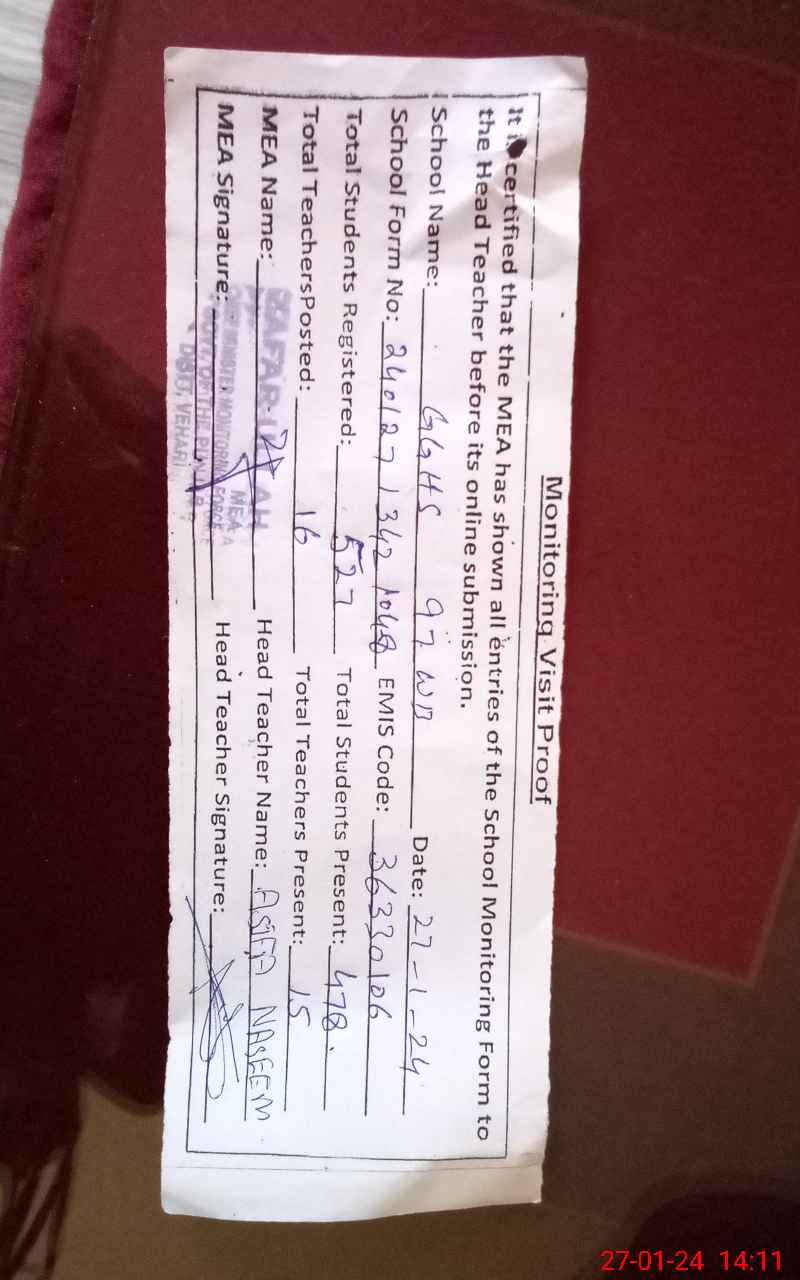 Monitoring Visit Proof
It is certified that the MEA has shown all entries of the School Monitoring Form to
the Head Teacher before its online submission.
School Name: GGHS 97 WB Date: 27-1-24
School Form No: 240127 1342 1048 EMIS Code: 36330106
Total Students Registered: 527 Total Students Present: 478.
Total TeachersPosted: 16 Total Teachers Present: 15
MEA Name: ZAFAR Head Teacher Name: ASIFA NASEEM
MEA
MEA Signature: Head Teacher Signature:
MINISTER MONITORING FORCE
GOVT. OF THE PUNJAB
DISTT, VEHARI
27-01-24 14:11